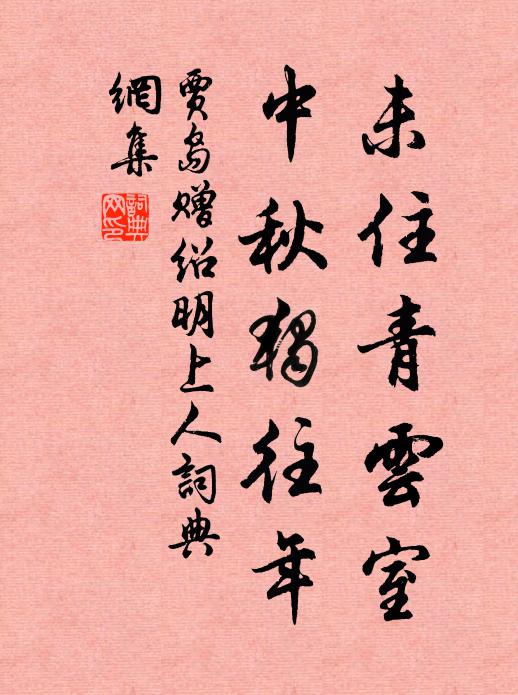 未住青雲室
中秋獨往年
賈島贈紹明上人詞典
網集
詞典網印